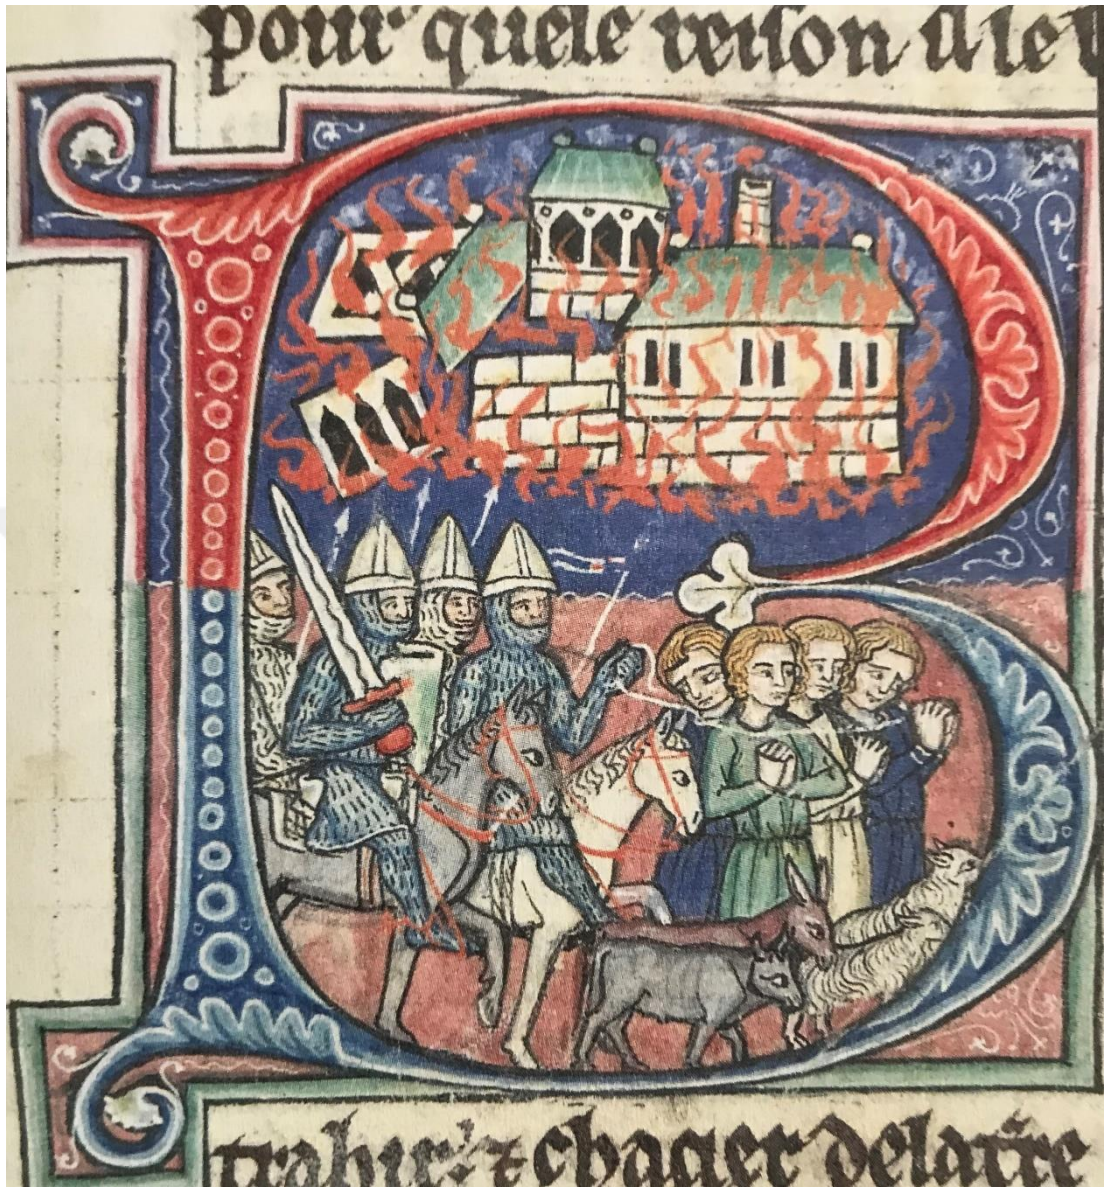 pour quele reison il le
B
trahir: ⁊ chacier de la